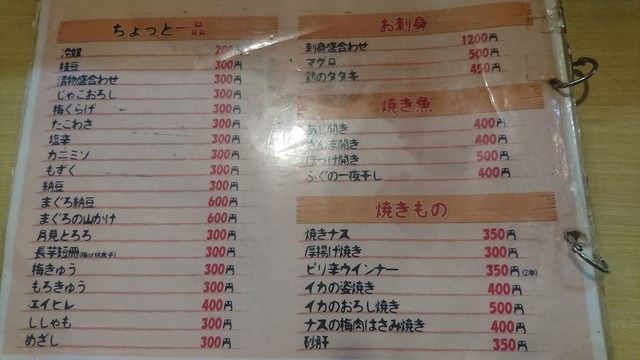 ちょっと一品
冷奴 200円
枝豆 300円
漬物盛合わせ 300円
じゃこおろし 300円
梅くらげ 300円
たこわさ 300円
塩辛 300円
カニミソ 300円
もずく 300円
納豆 300円
まぐろ納豆 600円
まぐろの山かけ 600円
月見とろろ 300円
長芋短冊 300円
梅きゅう 300円
もろきゅう 300円
エイヒレ 400円
ししゃも 300円
めざし 300円
お刺身
刺身盛合わせ 1200円
マグロ 500円
鶏のタタキ 450円
焼き魚
あじ開き 400円
さんま開き 400円
ほっけ開き 500円
ふぐの一夜干し 400円
焼きもの
焼きナス 350円
厚揚げ焼き 300円
ピリ辛ウインナー 350円(2本)
イカの姿焼き 400円
イカのおろし焼き 500円
ナスの梅肉はさみ焼き 400円
砂肝 350円